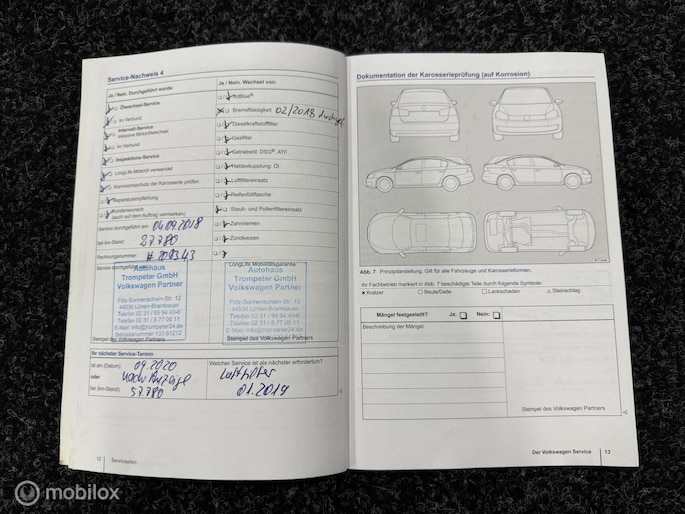 Service-Nachweis 4
Ja / Nein. Durchgeführt wurde:
Ölwechsel-Service
im Verbund
Intervall-Service
inklusive Motorölwechsel
im Verbund
Inspektions-Service
LongLife Motoröl verwendet
Korrosionsschutz der Karosserie prüfen
Reparaturempfehlung
Kundenwunsch
(auch auf dem Auftrag vermerken)
Ja / Nein. Wechsel von:
AdBlue®
Bremsflüssigkeit 02/2018
Dieselkraftstofffilter
Gasfilter
Getriebeöl DSG®, ATF
Haldexkupplung: Öl
Luftfiltereinsatz
Reifenfüllflasche
Staub- und Pollenfiltereinsatz
Zahnriemen
Zündkerzen
Service durchgeführt am: 04.09.2018
bei km-Stand: 27.780
Rechnungsnummer:
Service durchgeführt
LongLife Mobilitätsgarantie
Autohaus
Trompeter GmbH
Volkswagen Partner
Fritz-Sonnenschein-Str. 12
44536 Lünen-Brambauer
Telefon 02 31 / 99 54 43-0
Telefax 02 31 / 8 77 00 11
E-Mail: info@trompeter24.de
Betriebsnummer 133 61212
Stempel des Volkswagen Partners
Autohaus
Trompeter GmbH
Volkswagen Partner
Fritz-Sonnenschein-Str. 12
44536 Lünen-Brambauer
Telefon 02 31 / 99 54 43-0
Telefax 02 31 / 8 77 00 11
E-Mail: info@trompeter24.de
Stempel des Volkswagen Partners
Ihr nächster Service-Termin:
ist am (Datum): 09.2020
oder nach Anzeige
bei (km-Stand): 57.780
Welcher Service ist als nächster erforderlich?
Luftfilter
01.2019
12 Serviceplan
Dokumentation der Karosserieprüfung (auf Korrosion)
Abb. 7 Prinzipdarstellung. Gilt für alle Fahrzeuge und Karosserieformen.
Ihr Fachbetrieb markiert in Abb. 7 beschädigte Teile durch folgende Symbole:
Kratzer Beule/Delle Lackschaden Steinschlag
Mängel festgestellt? Ja: Nein:
Beschreibung der Mängel:
Stempel des Volkswagen Partners
Der Volkswagen Service 13
mobilox